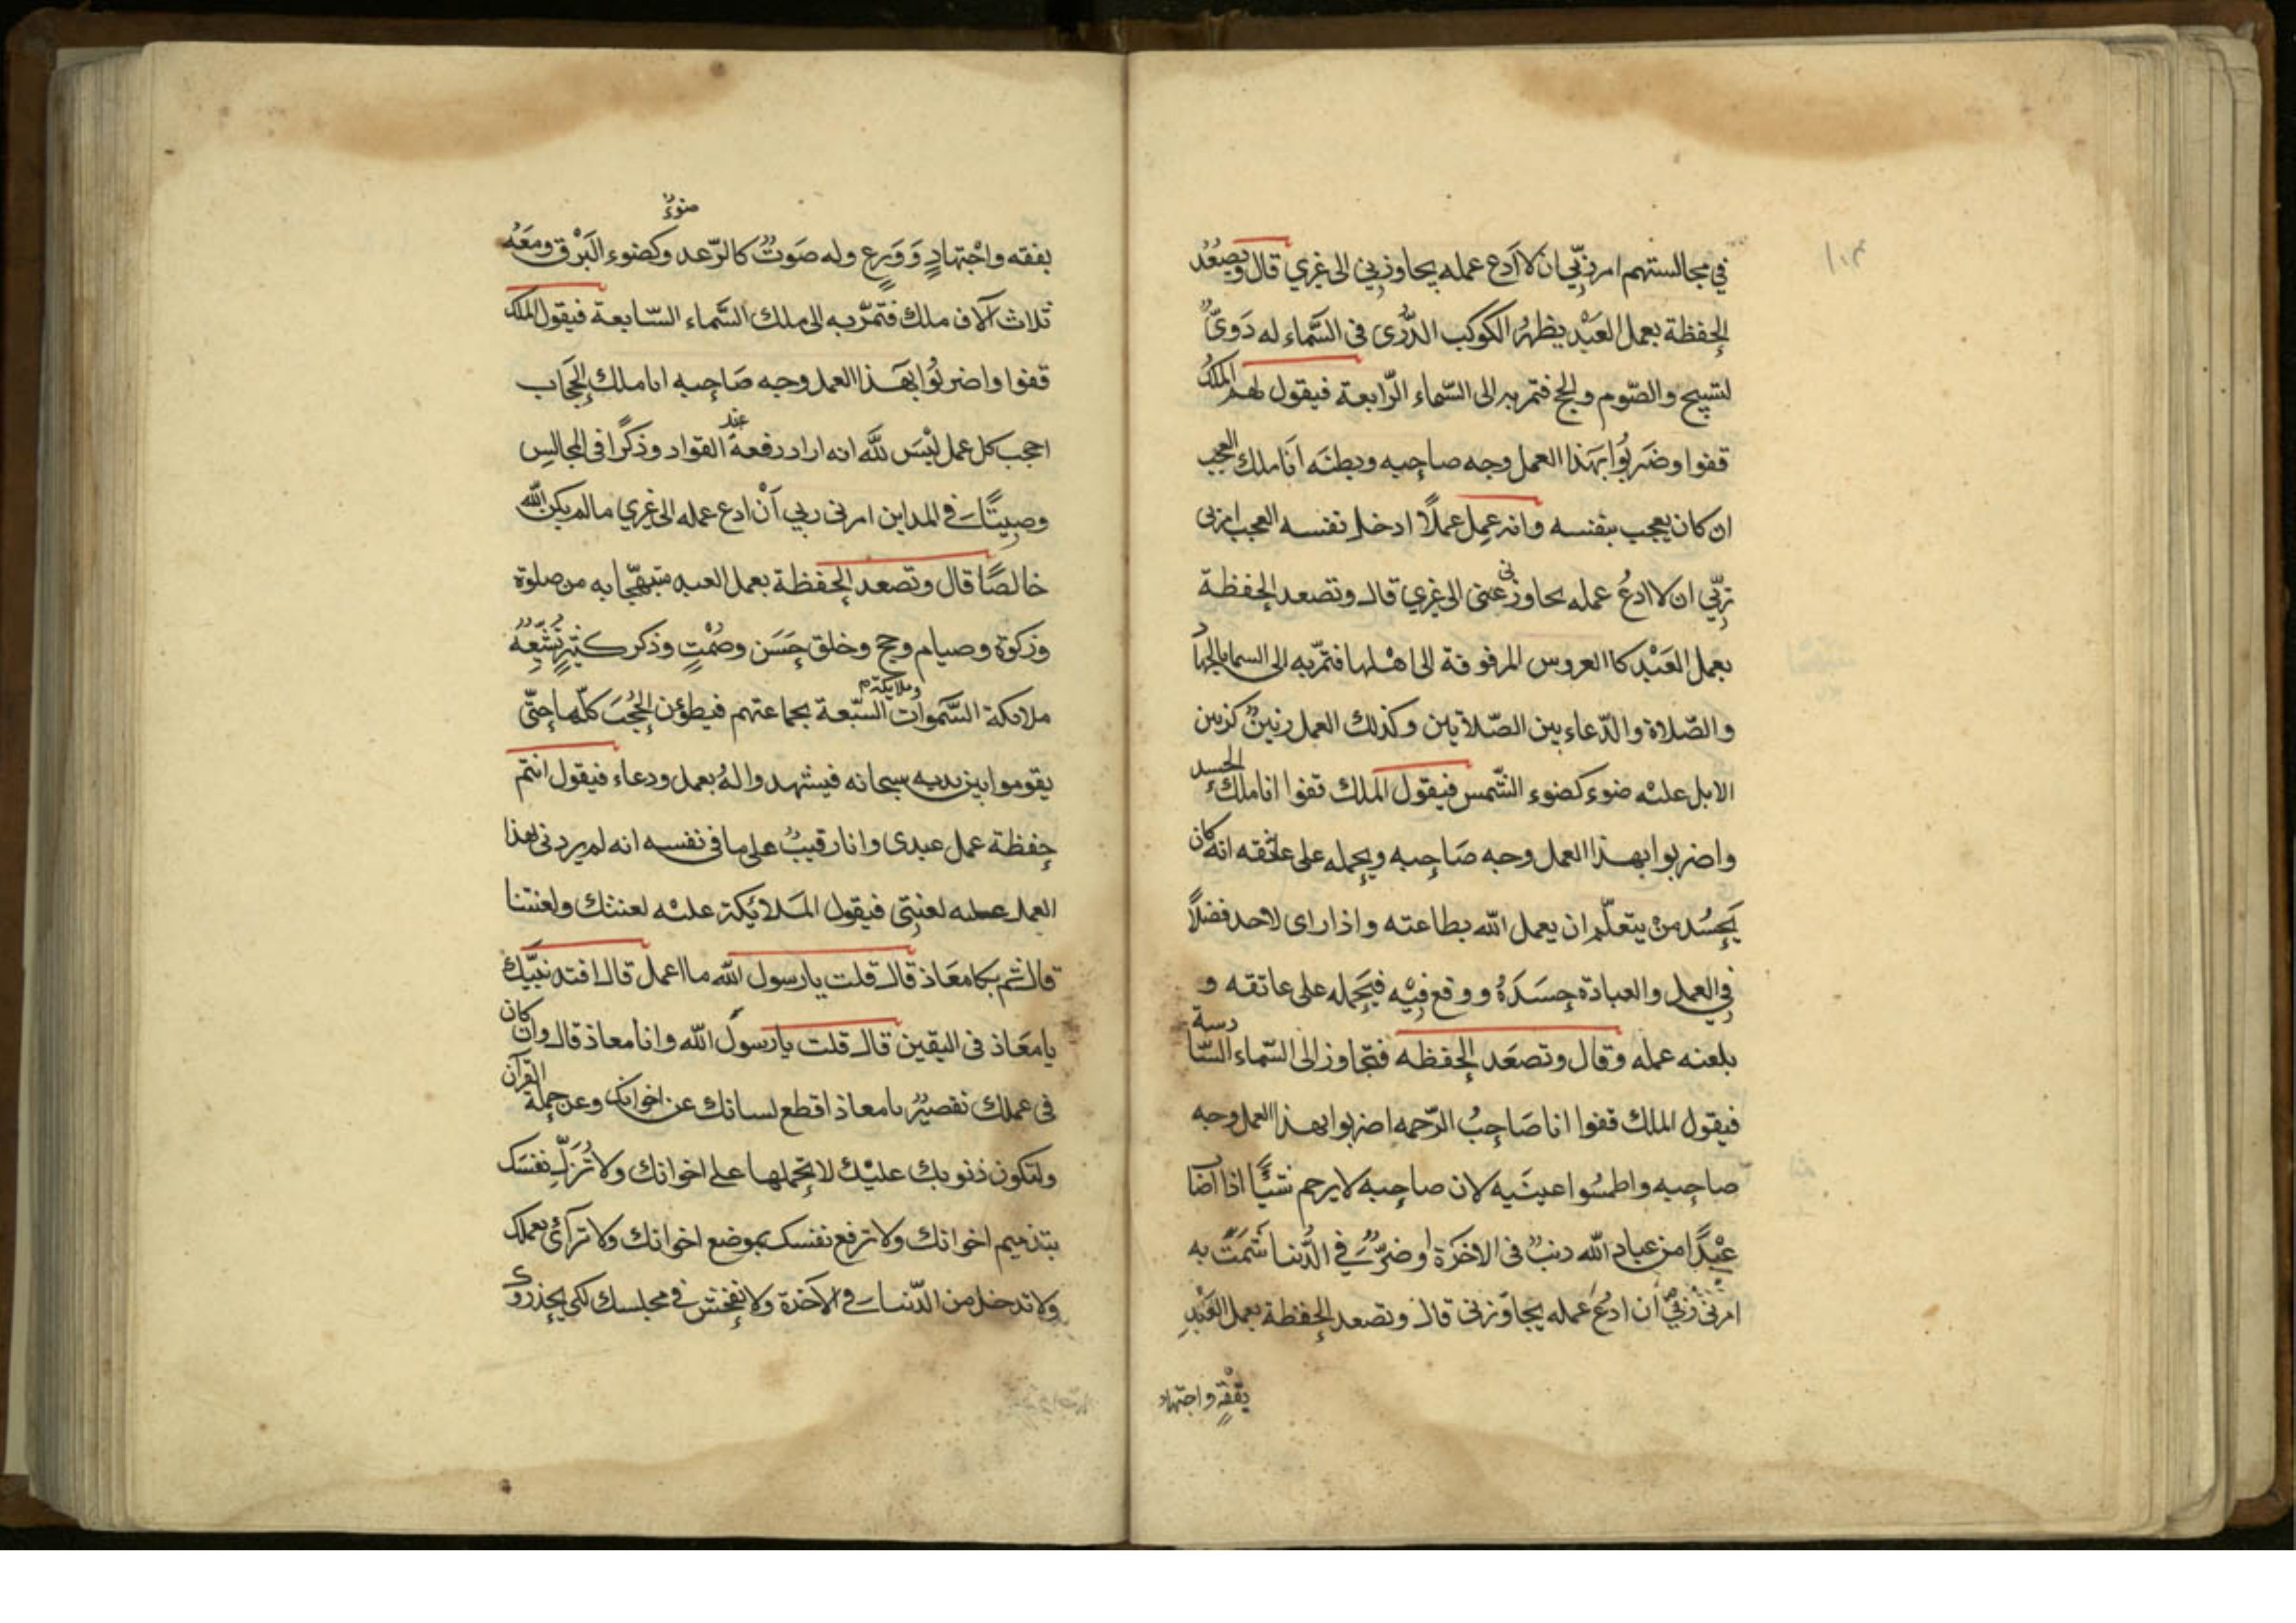 في مجالستهم امرني ربّي ان لا أدع عمله يجاوزني الى غيري قال وتصعُدُ
الحفظة بعمل العَبْد يظهرُ الكوكب الدُّرّى فى السَّماء له دَويٌّ
لتسبيح والصّوم والحج فتمر به الى السّماء الرّابعة فيقول لهم الملكُ
قفوا وضَربُوا بهَذا العمل وجه صاحبه وبطنَه أنا ملك العجب
ان كان يعجب بنفسه وانه عمِل عملًا ادخل نفسه العجب امرنى
ربّي ان لا ادعُ عمله يجاوزنى عنى الى غيري قال وتصعد الحفظة
بعمل العَبْد كا العروس المرفوفة الى اهْلها فتمّر به الى السما بالجهاد
والصّلاة والدّعاء بين الصّلاتين وكذلك العمل رنينٌ كزنين
الابل عليْه ضوء كضوء الشّمس فيقول الملك قفوا انا ملك الحسد
واضربوا بهذا العمل وجه صَاحبه ويحمله على عاتقه انه كان
يَحسُد منْ يتعلّم ان يعمل الله بطاعته واذا راى لاحد فضلًا
في العمل والعبادة حسَدَهُ ووقع فيْه فيَحمله على عاتقه و
يلعنه عمله وقال وتصعَد الحفظه فتجاوز الى السّماء السّادسة
فيقول الملك قفوا انا صَاحبُ الرّحمه اضربوا بهذا العمل وجه
صاحبه واطمسُوا عينَيه لان صاحبه لا يرحم شيئًا اذا اضا
عبْدًا من عباد الله دنبٌ فى الاخرَة او ضرٌّ في الدُّنيا شَمَتَ به
امرنى ربّي أن ادُعُ عمله يجاوزنى قال وتصعد الحفظة بعمل العَبْدِ
بفقهٍ واجتهاد
١٠٣
ضوءٌ
بفقه واجْتهادٍ وَوَرعٍ وله صَوتٌ كالرّعد وكضوء البَرْق ومعَهُ
ثلاث آلاف ملك فتمّر به الى ملك السَّماء السّابعة فيقول الملك
قفوا واضربُوا بهَذا العمل وجه صَاحبه انا ملك الحجَاب
احجب كل عمل ليْسَ للّه انه اراد رفعة عند القواد وذكرًا فى المجالس
وصيتًا في المداين امرنى ربي أنْ ادع عمله الى غيري ما لم يكن لله
خالصًا قال وتصعد الحفظة بعمل العبد متبهّجا به من صلوة
وزكوة وصيام وحج وخلق حسَن وصُمْتٍ وذكر كثيرٍ تُشَيّعُهُ
ملائكة السَّموات وملايكة السّبعة بجماعتهم فيطؤن الحُجُبَ كلّها حتّى
يقوموا بين يديه سبحانه فيشهدوا لهُ بعمل ودعاء فيقول انتم
حفظة عمل عبدى وانا رقيبٌ على ما فى نفسه انه لم يردنى بهذا
العمل عليه لعنتى فيقول المَلائكة عليْه لعنتك ولعنتنا
قال ثم بكا معَاذ قال قلت يا رسول الله ما اعمل قال اقتد نبيّك
يا معَاذ فى اليقين قال قلت يا رسولَ الله وانا معاذ قال وان كان
فى عملك تقصيرٌ يا معاذ اقطع لسانك عن اخوانك وعن حملة القرآن
ولتكون ذنوبك عليْك لا تحملها على اخوانك ولا تُزَكِّ نفسَك
بتذميم اخوانك ولا ترفع نفسك بموضع اخوانك ولا ترآئ بعملك
ولا تدخل من الدّنيا في الآخرة ولا تفحش في مجلسك لكي يحذروك